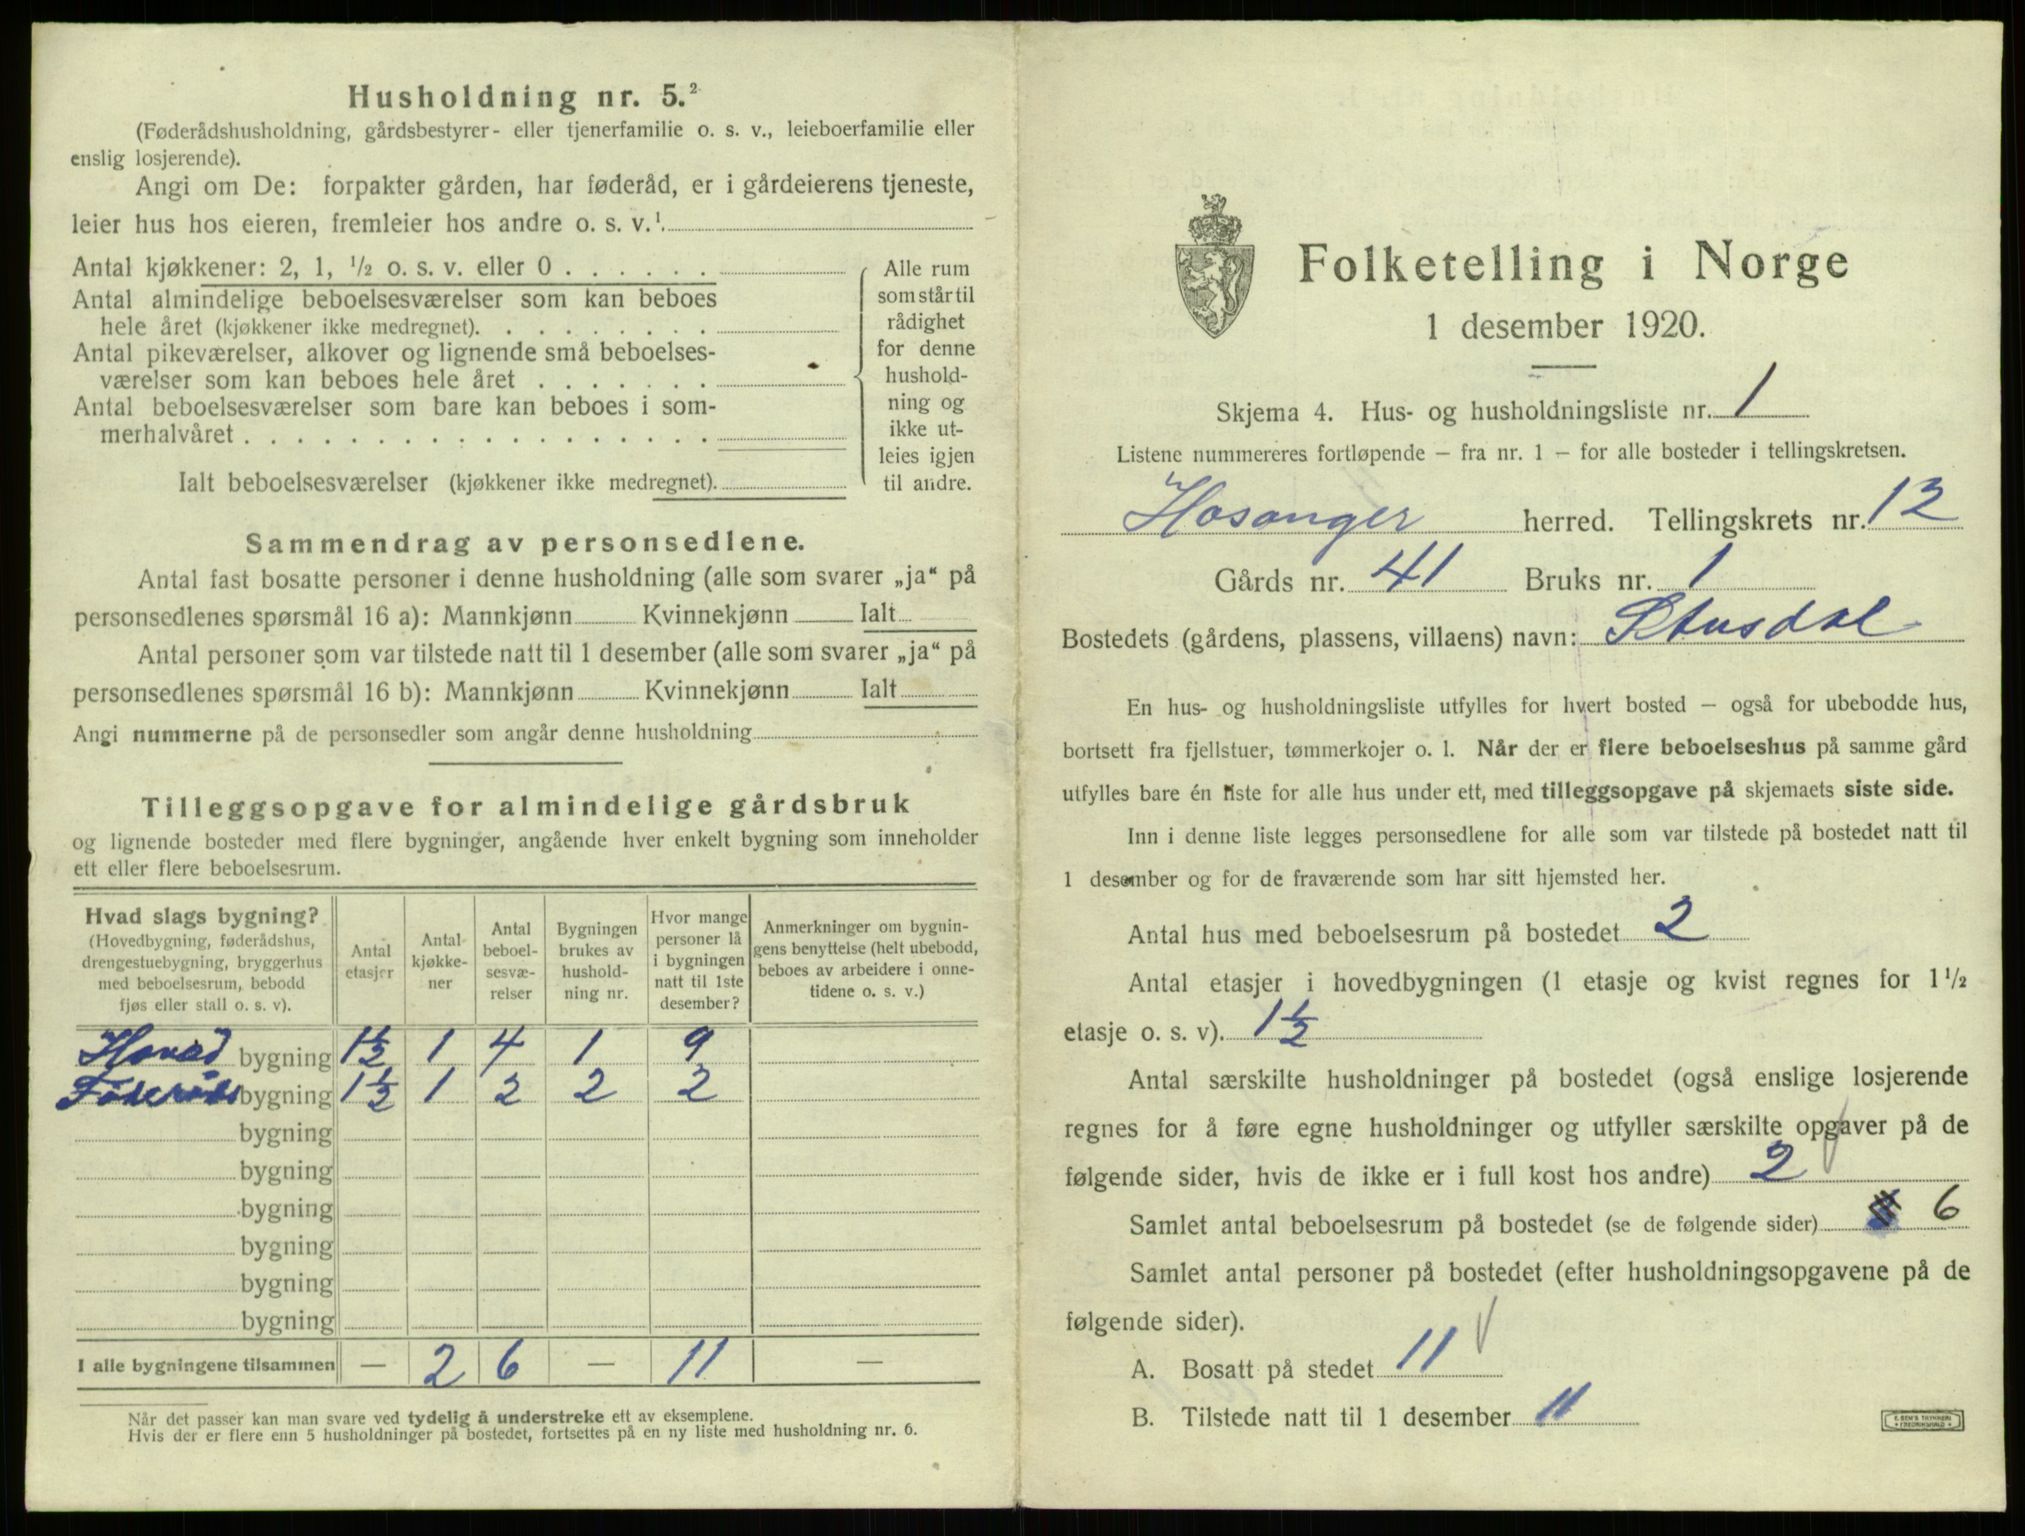 Husholdning nr. 5.²
(Føderådshusholdning, gårdsbestyrer- eller tjenerfamilie o. s. v., leieboerfamilie eller
enslig losjerende).
Angi om De: forpakter gården, har føderåd, er i gårdeierens tjeneste,
leier hus hos eieren, fremleier hos andre o. s. v.¹
Antal kjøkkener: 2, 1, ½ o. s. v. eller 0 . . . . . .
Antal almindelige beboelsesværelser som kan beboes
hele året (kjøkkener ikke medregnet). . . . . . . . .
Antal pikeværelser, alkover og lignende små beboelses-
værelser som kan beboes hele året . . . . . . .
Antal beboelsesværelser som bare kan beboes i som-
merhalvåret . . . . . . . . . . . . . . . . . .
Ialt beboelsesværelser (kjøkkener ikke medregnet).
Alle rum
som står til
rådighet
for denne
hushold-
ning og
ikke ut-
leies igjen
til andre.
Sammendrag av personsedlene.
Antal fast bosatte personer i denne husholdning (alle som svarer „ja“ på
personsedlenes spørsmål 16 a): Mannkjønn Kvinnekjønn Ialt
Antal personer som var tilstede natt til 1 desember (alle som svarer „ja“ på
personsedlenes spørsmål 16 b): Mannkjønn Kvinnekjønn Ialt
Angi nummerne på de personsedler som angår denne husholdning
Tilleggsopgave for almindelige gårdsbruk
og lignende bosteder med flere bygninger, angående hver enkelt bygning som inneholder
ett eller flere beboelsesrum.
Hvad slags bygning?
(Hovedbygning, føderådshus,
drengestuebygning, bryggerhus
med beboelsesrum, bebodd
fjøs eller stall o. s. v).
Antal
etasjer
Antal
kjøkke-
ner
Antal
beboel-
sesvæ-
relser
Bygningen
brukes av
hushold-
ning nr.
Hvor mange
personer lå
i bygningen
natt til 1ste
desember?
Anmerkninger om bygnin-
gens benyttelse (helt ubebodd,
beboes av arbeidere i onne-
tidene o. s. v.)
Hoved bygning 1½ 1 4 1 9
Føderåds bygning 1½ 1 2 2 2
bygning
bygning
bygning
bygning
bygning
bygning
I alle bygningene tilsammen — 2 6 — 11 —
Når det passer kan man svare ved tydelig å understreke ett av eksemplene.
Hvis der er flere enn 5 husholdninger på bostedet, fortsettes på en ny liste med husholdning nr. 6.
Folketelling i Norge
1 desember 1920.
Skjema 4. Hus- og husholdningsliste nr. 1
Listene nummereres fortløpende – fra nr. 1 – for alle bosteder i tellingskretsen.
Hosanger herred. Tellingskrets nr. 12
Gårds nr. 41 Bruks nr. 1
Bostedets (gårdens, plassens, villaens) navn: Stusdal
En hus- og husholdningsliste utfylles for hvert bosted – også for ubebodde hus,
bortsett fra fjellstuer, tømmerkojer o. l. Når der er flere beboelseshus på samme gård
utfylles bare én liste for alle hus under ett, med tilleggsopgave på skjemaets siste side.
Inn i denne liste legges personsedlene for alle som var tilstede på bostedet natt til
1 desember og for de fraværende som har sitt hjemsted her.
Antal hus med beboelsesrum på bostedet 2
Antal etasjer i hovedbygningen (1 etasje og kvist regnes for 1½
etasje o. s. v). 1½
Antal særskilte husholdninger på bostedet (også enslige losjerende
regnes for å føre egne husholdninger og utfyller særskilte opgaver på de
følgende sider, hvis de ikke er i full kost hos andre) 2
Samlet antal beboelsesrum på bostedet (se de følgende sider) 6
Samlet antal personer på bostedet (efter husholdningsopgavene på de
følgende sider).
A. Bosatt på stedet 11
B. Tilstede natt til 1 desember 11